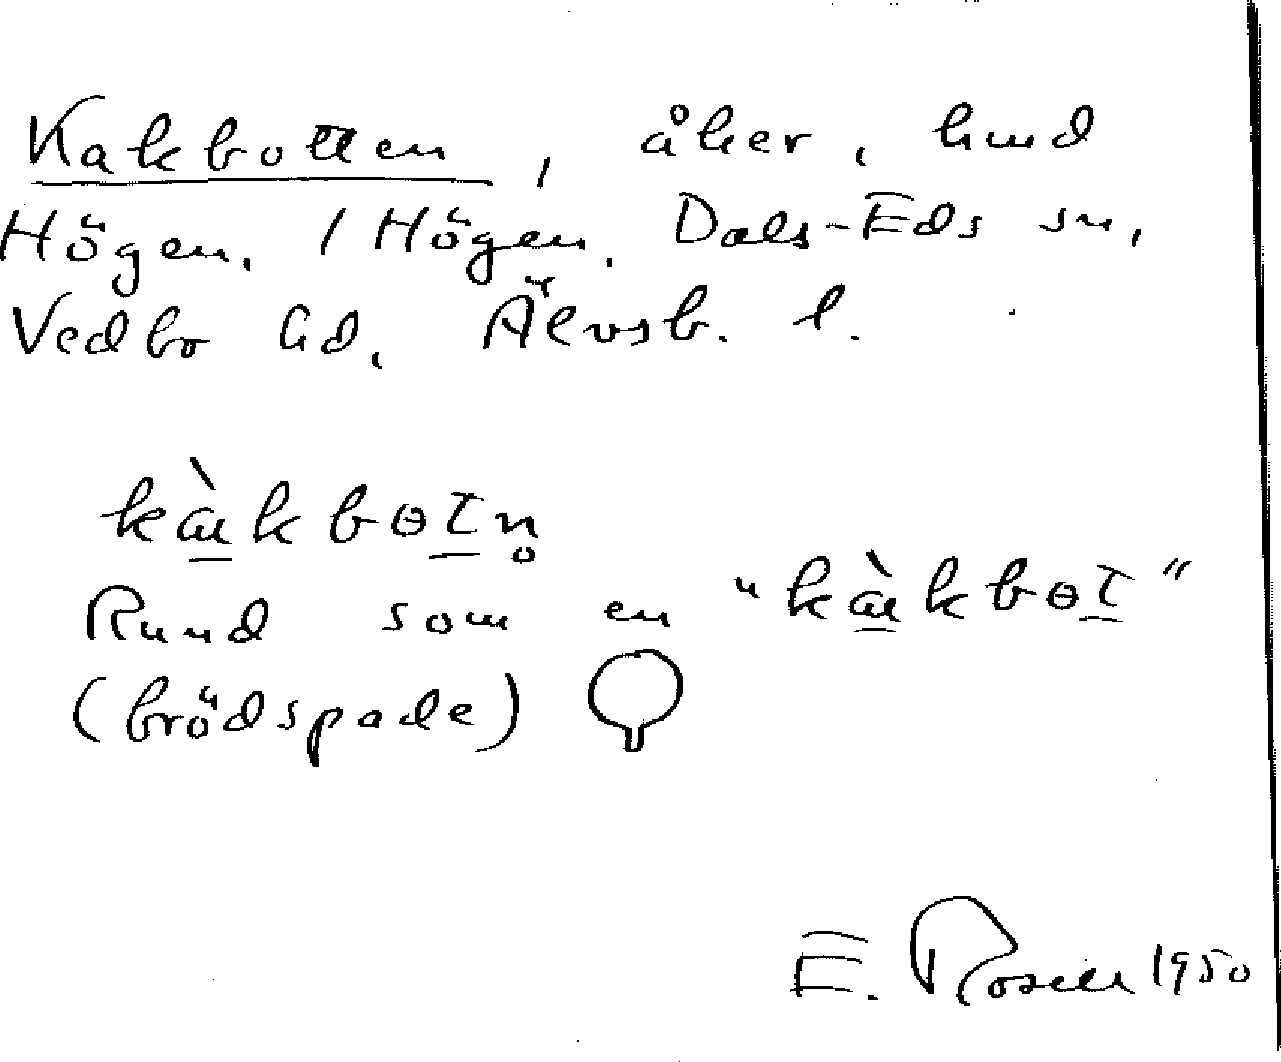 Kakbotten, åker, hmd
Högen, 1 Högen, Dals-Eds sn,
Vedbo hd, Älvsb. l.
kàkbɵtn̥
Rund som en "kàkbɵt"
(brödspade)
E. Rosell 1950